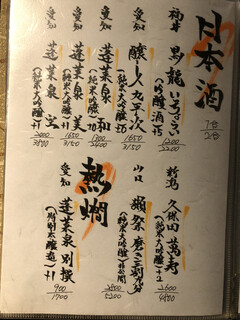 日本酒
1合
2合
福井 黒龍 いっちょらい
(吟醸酒)+5
1200
2200
愛知 醸し人九平次
(純米大吟醸)+5
1650
3150
愛知 蓬莱泉 和
(純米吟醸)
1300
2400
愛知 蓬莱泉 美
(純米大吟醸)
1650
3150
愛知 蓬莱泉 空
(純米大吟醸)+1
2000
3850
新潟 久保田 萬寿
(純米大吟醸)+2
2600
4800
山口 獺祭 磨き三割九分
(純米大吟醸)非公開
2800
5200
熱燗
愛知 蓬莱泉 別撰
900
1700